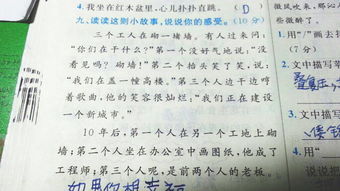 4.我坐在红木盆里,心儿扑扑直跳。 (D)
九、读读这则小故事,说说你的感受。(10分)
三个工人在砌一堵墙。有人过来问:
“你们在干什么?”第一个没好气地说:“没
看见吗?砌墙!”第二个抬头笑了笑,说:
“我们在盖一幢高楼。”第三个人边干边哼
着歌曲,他的笑容很灿烂:“我们正在建设
一个新城市。”
10年后,第一个人在另一个工地上砌
墙;第二个人坐在办公室中画图纸,他成了
工程师;第三个人呢,是前两个人的老板。
如果你想幸福
微风吹来,那沁
些微醉了。
1.用“/”画去括
(7分)
2.文中描写葡
3.文中描写
4.用“
说说把